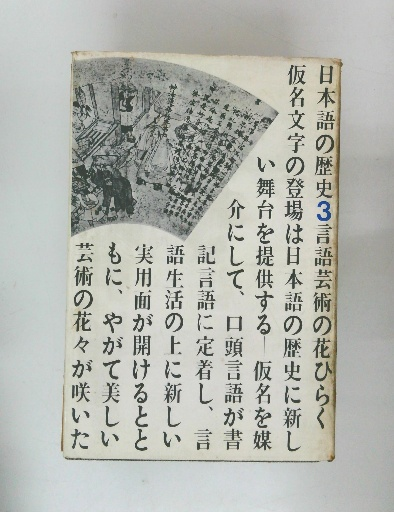 日本語の歴史3言語芸術の花ひらく
仮名文字の登場は日本語の歴史に新し
い舞台を提供する―仮名を媒
介にして、口頭言語が書
記言語に定着し、言
語生活の上に新しい
実用面が開けるとと
もに、やがて美しい
芸術の花々が咲いた